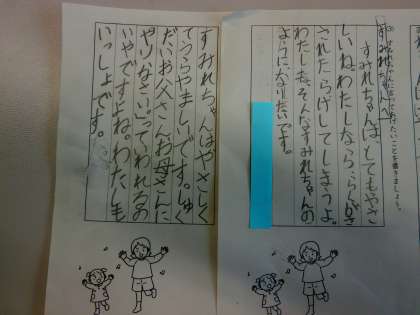 すみれちゃんへ
すみれちゃんは、とてもやさ
しいね。わたしなら、らんぼうに
されたらけしてしまうよ。
わたしも、そんなすみれちゃんの
ように、なりたいです。
すみれちゃんはやさしく
てうらやましいです。しゅく
だいお父さんお母さんに
やりなさいっていわれるの
いやですよね。わたしも
いっしょです。